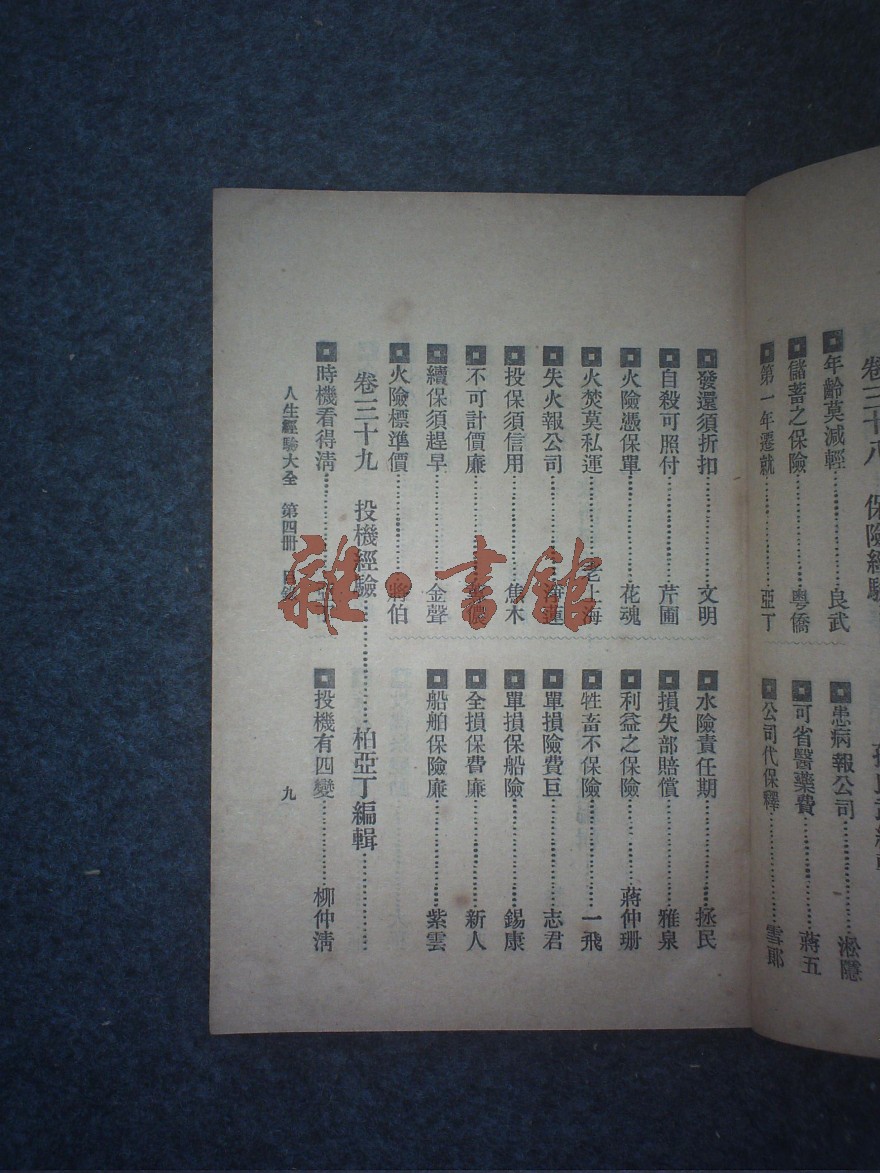 卷三十八 保險經驗
年齡莫減輕 良武
患病報公司 淞隱
儲蓄之保險 粵僑
可省醫藥費 蔣五
第一年遷就 亞丁
公司代保釋 雪郎
發還須折扣 文明
自殺可照付 芹圃
火險憑保單 花魂
火焚莫私運 老上海
失火報公司
投保須信用 焦木
不可計價廉
續保須趕早 金聲
火險標準價 蔣伯
水險責任期 拯民
損失部賠償 雅泉
利益之保險 蔣仲珊
牲畜不保險 一飛
單損險費巨 志君
單損保船險 錫康
全損保費廉 新人
船舶保險廉 紫雲
卷三十九 投機經驗 柏亞丁編輯
時機看得清
投機有四變 柳仲淸
人生經驗大全 第四冊 目錄 九
雜·書館